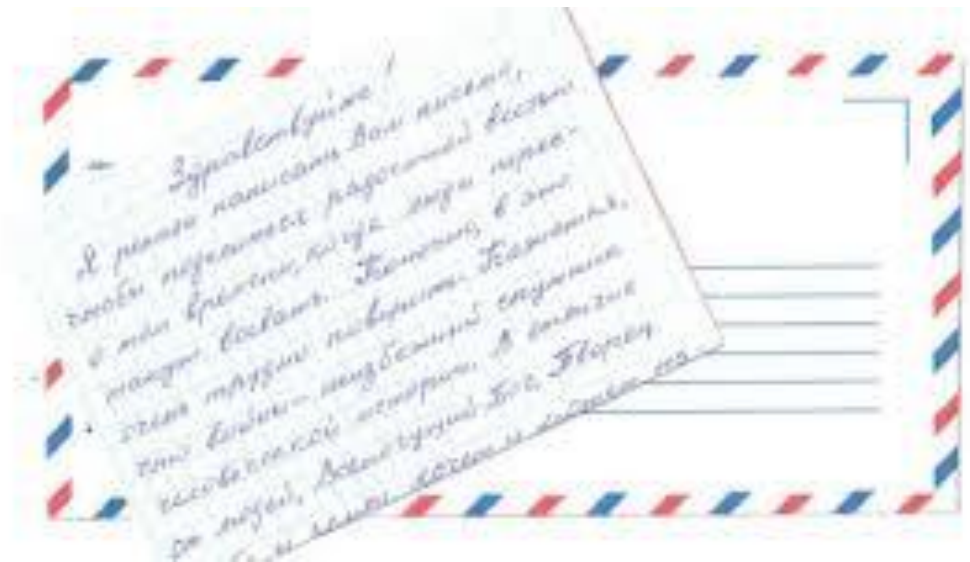 Здравствуйте!
Я решил написать Вам письмо,
чтобы поделиться радостной вестью
о том времени, когда люди перес-
танут воевать. Конечно, в это
очень трудно поверить. Кажется,
что войны - неизбежный спутник
человеческой истории. В отличие
от людей, Всемогущий Бог, Творец